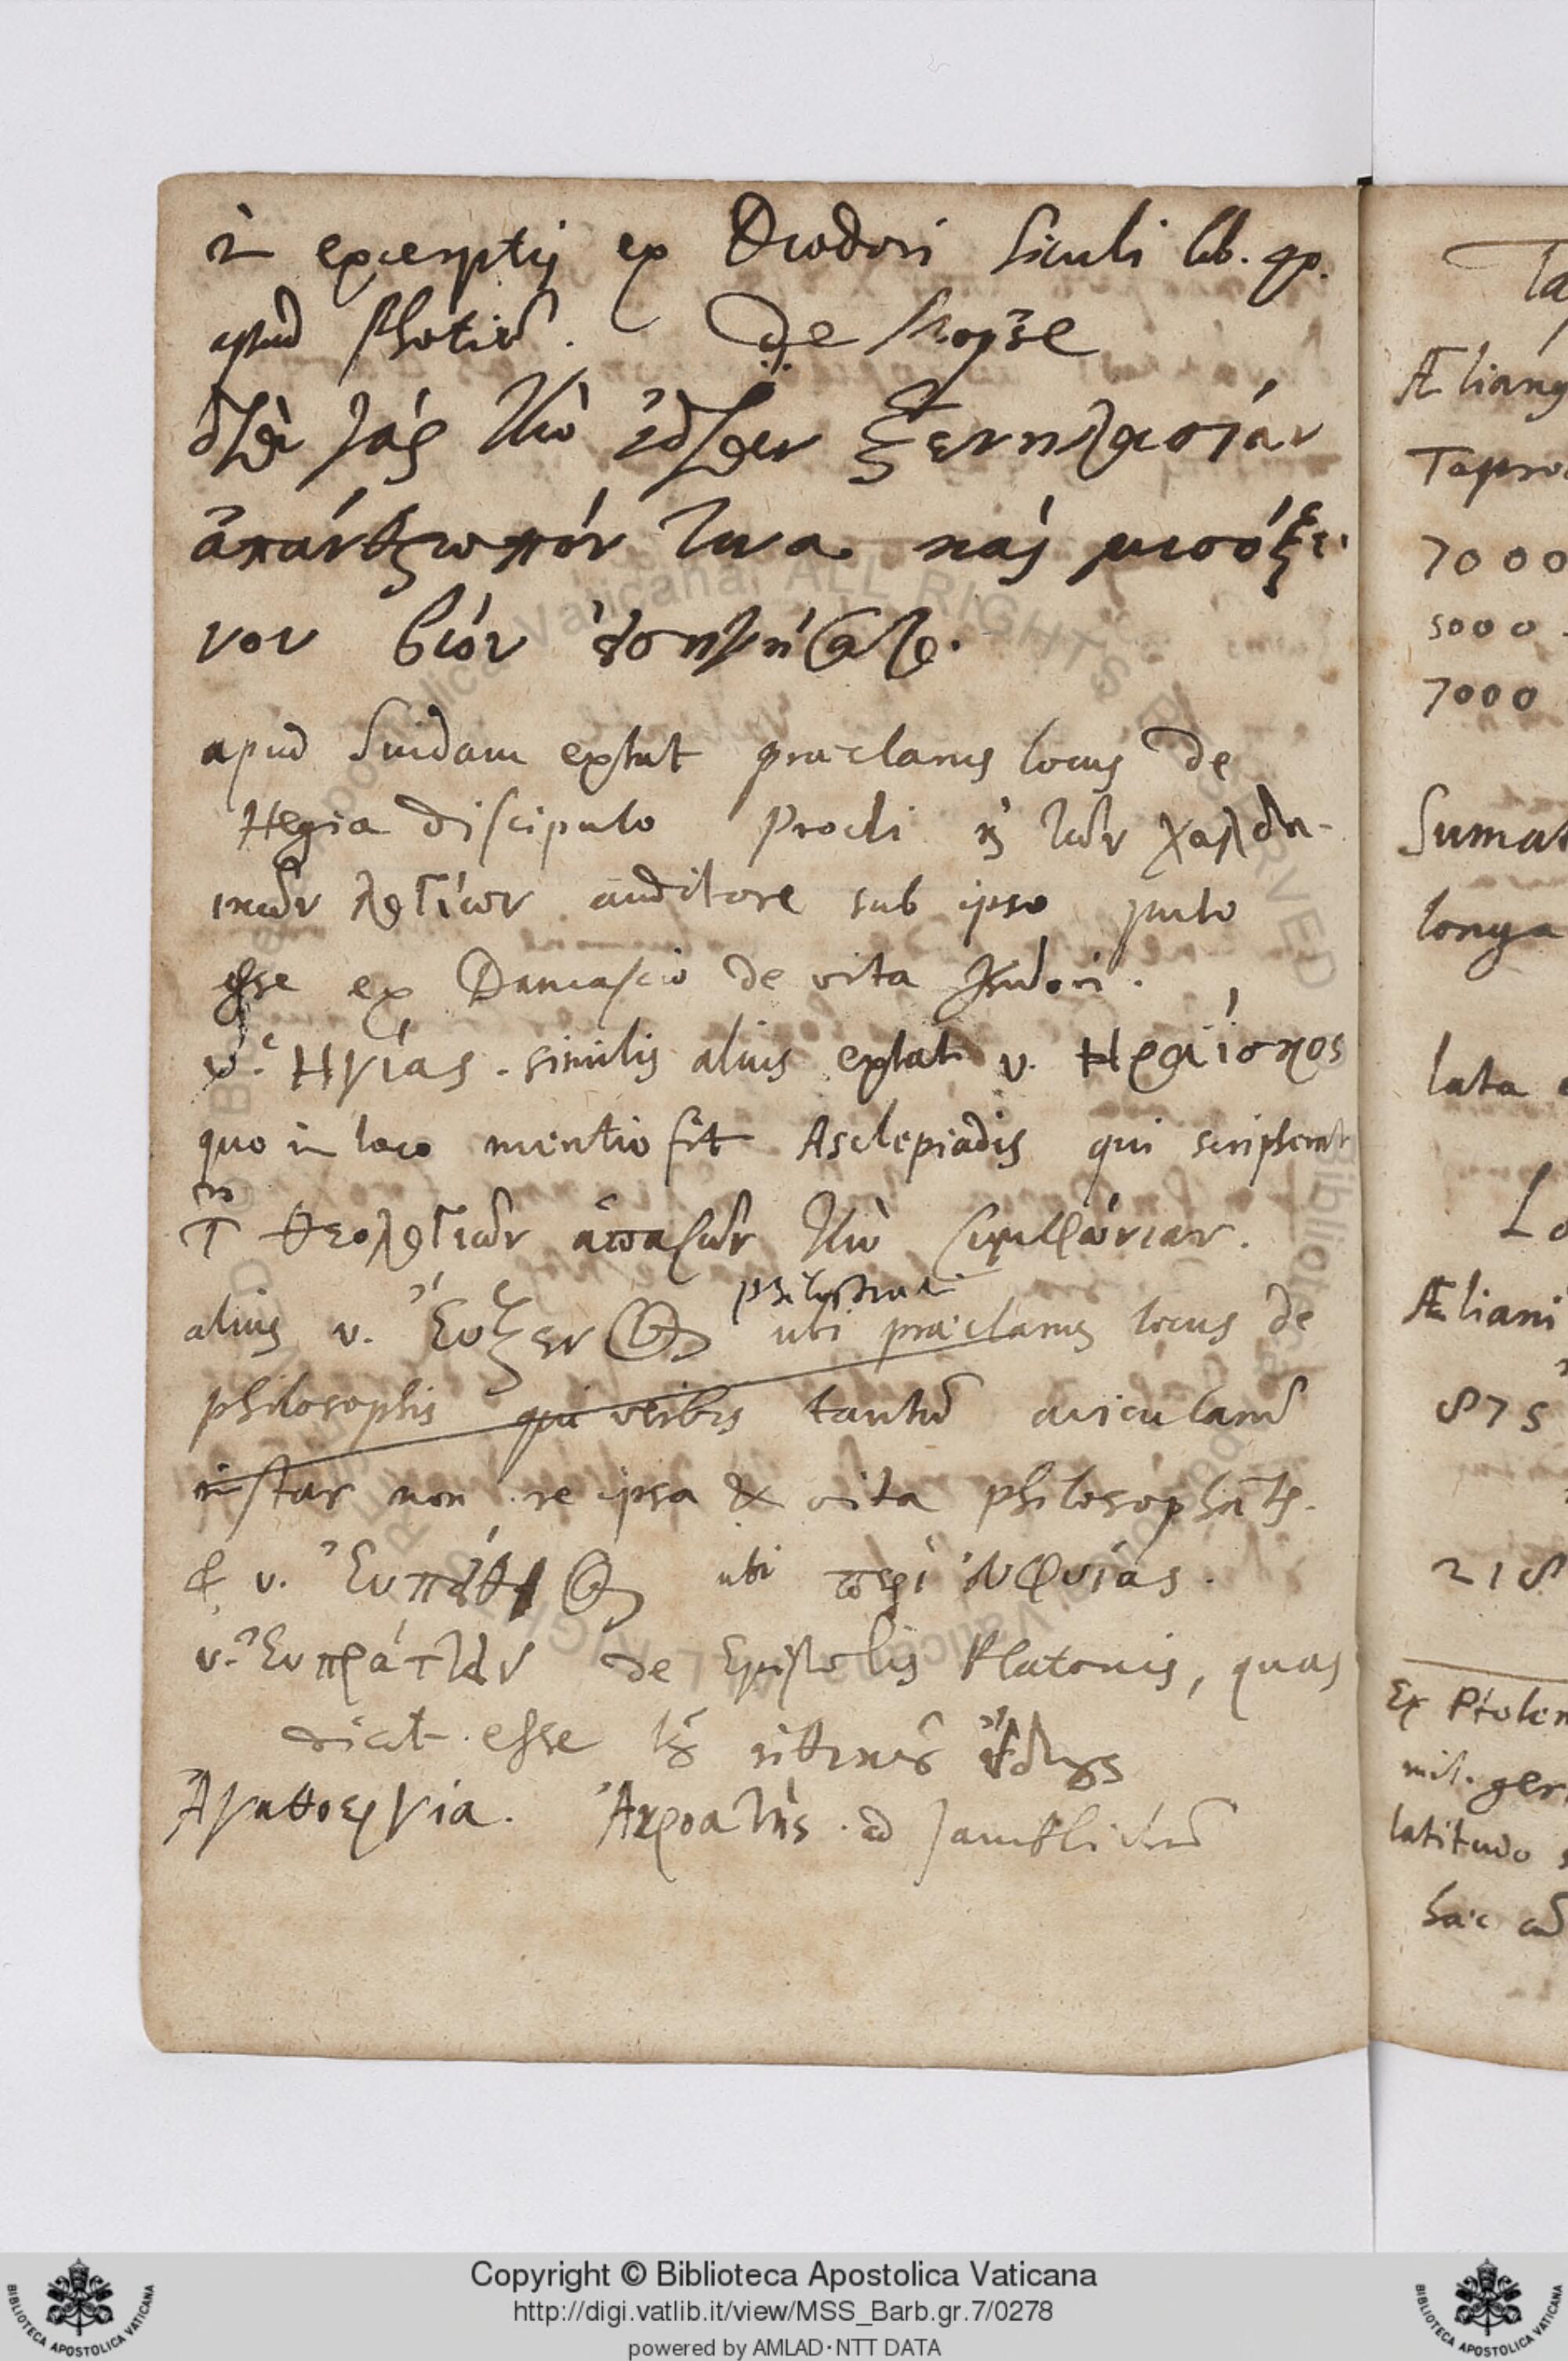 in excerptis ex Diodori Siculi lib. 40.
apud Photiũ. De Moyse
διὰ γὰρ τὴν ἰδίαν ξενηλασίαν
ἀπάνθρωπόν τινα καὶ μισόξε-
νον βίον εἰσηγήσατο.
apud Suidam extat præclarus locus de
Hegia discipulo Procli κ τῶν χαλδα-
ικῶν λογίων auditore sub ipso puto
esse ex Damascio de vita Isidori.
v. Ἡγίας. similis alius extat v. Ηραΐσκος
quo in loco mentio fit Asclepiadis qui scripserat
τ θεολογιῶν ἁπασῶν τὴν συμφωνίαν.
alius v. Ἐύξενος ubi præclarus locus de
philosophis qui verbis tantũ avicularũ
instar non re ipsa & vita philosophātr.
& v. Ευπείθιος ubi περὶ ευφυΐας.
v. Ἐυπράττειν de Epistolis Platonis, quas
dicit esse τοῦ ηθικοῦ εἴδους
Ἀγαθοεργία. Ἀκροατής. ad Jamblichũ
Æliang
Tapro
7000
5000
7000
Sumat
longa
lata
Æliani
875
218
Ex Ptolem
mil. ger
latitudo
hæc
Copyright © Biblioteca Apostolica Vaticana
http://digi.vatlib.it/view/MSS_Barb.gr.7/0278
powered by AMLAD·NTT DATA
BIBLIOTECA APOSTOLICA VATICANA
BIBLIOTECA APOSTOLICA VATICANA